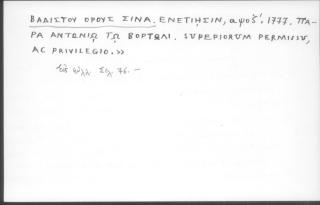 ΒΑΔΙΣΤΟΥ ΟΡΟΥΣ ΣΙΝΑ. ΕΝΕΤΙΗΣΙΝ, αψοζ΄. 1777. ΠΑ-
ΡΑ ΑΝΤΩΝΙῼ Τῼ ΒΟΡΤΩΛΙ. SUPERIORUM PERMISSU,
AC PRIVILEGIO.»
Σελ. 76. —